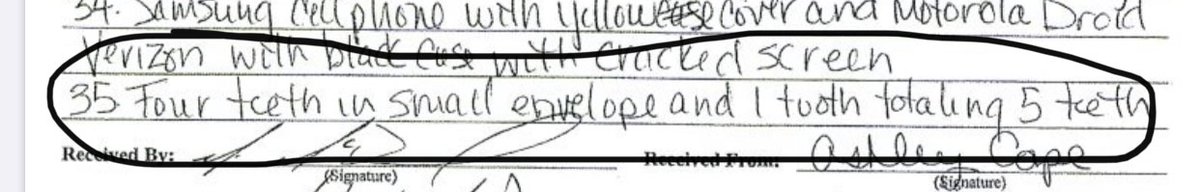 34. Samsung Cell phone with Yellow case cover and Motorola Droid
Verizon with black case with cracked screen
35 Four teeth in small envelope and 1 tooth totaling 5 teeth
Received By: Received From: Ashley Cope
(Signature) (Signature)